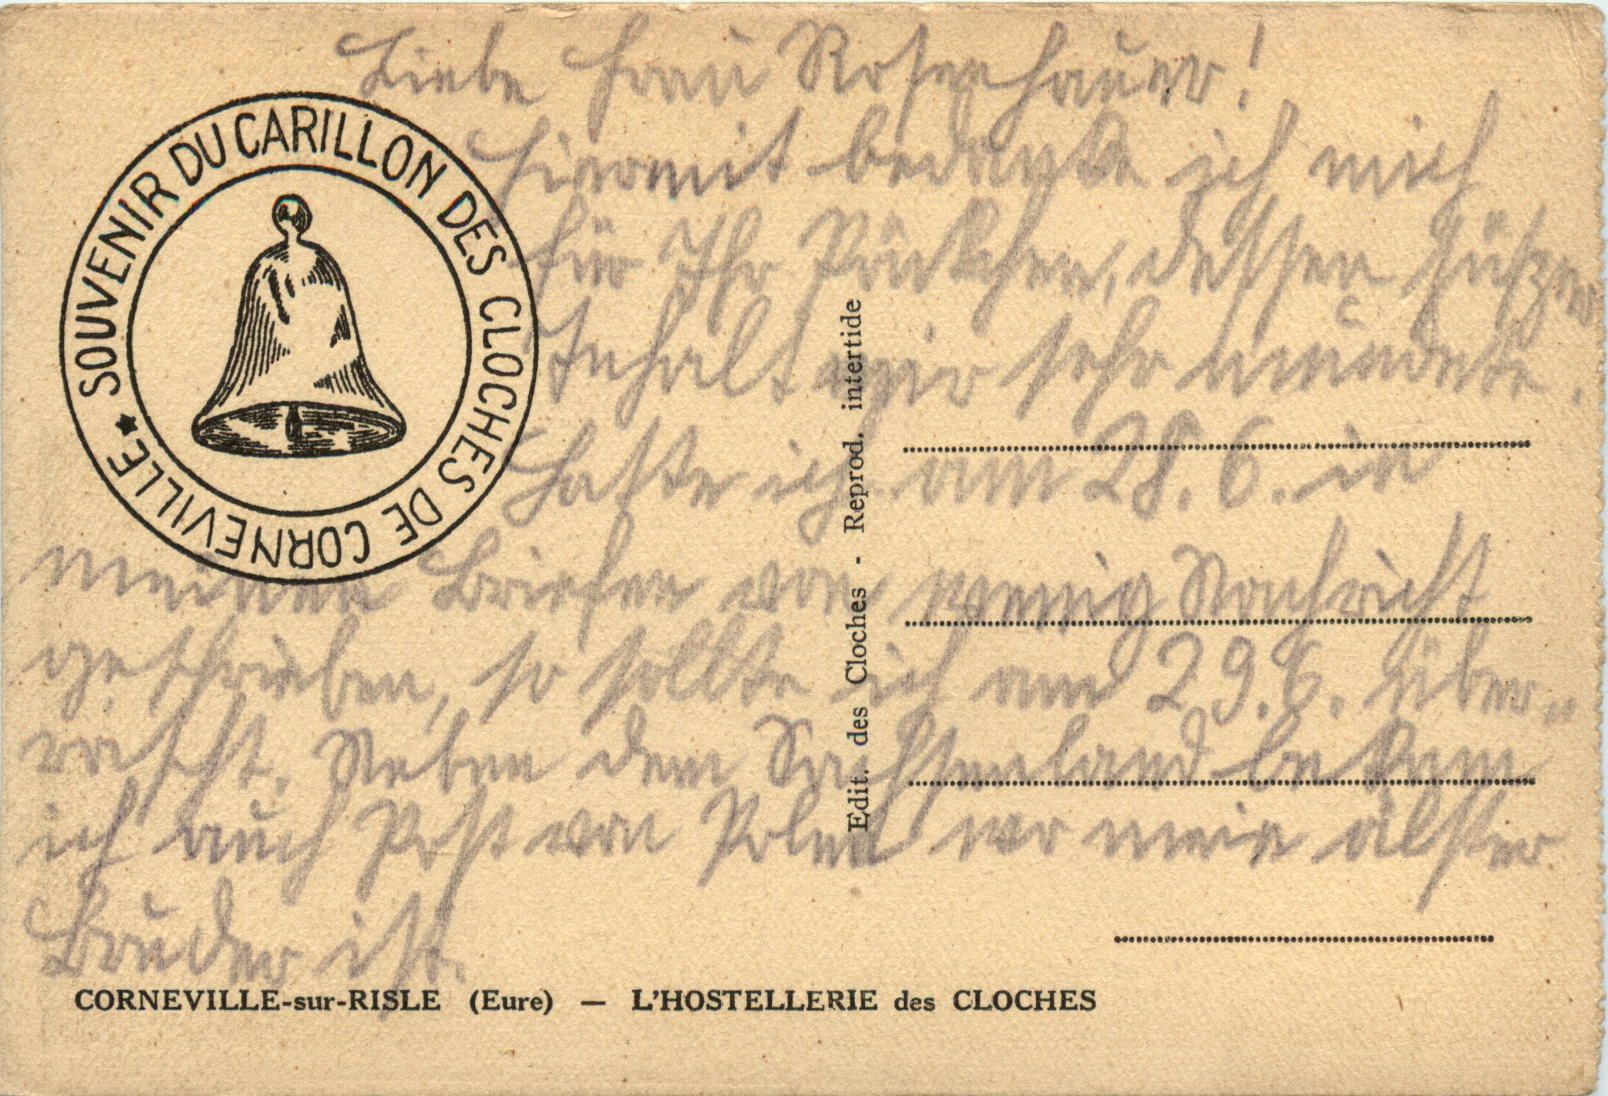 Liebe Frau Rosenhauer!
Hiermit bedanke ich mich
für Ihr Päckchen, dessen süßer
Inhalt mir sehr mundete.
Hatte ich am 28.6. in
meinen Briefen von wenig Nachricht
geschrieben, so sollte ich am 29.6. über-
rascht. Neben dem Sachsenland bekam
ich auch Post von Polen wo mein älster
Bruder ist.
SOUVENIR DU CARILLON DES CLOCHES DE CORNEVILLE ★
Edit. des Cloches - Reprod. intertide
CORNEVILLE-sur-RISLE (Eure) — L'HOSTELLERIE des CLOCHES